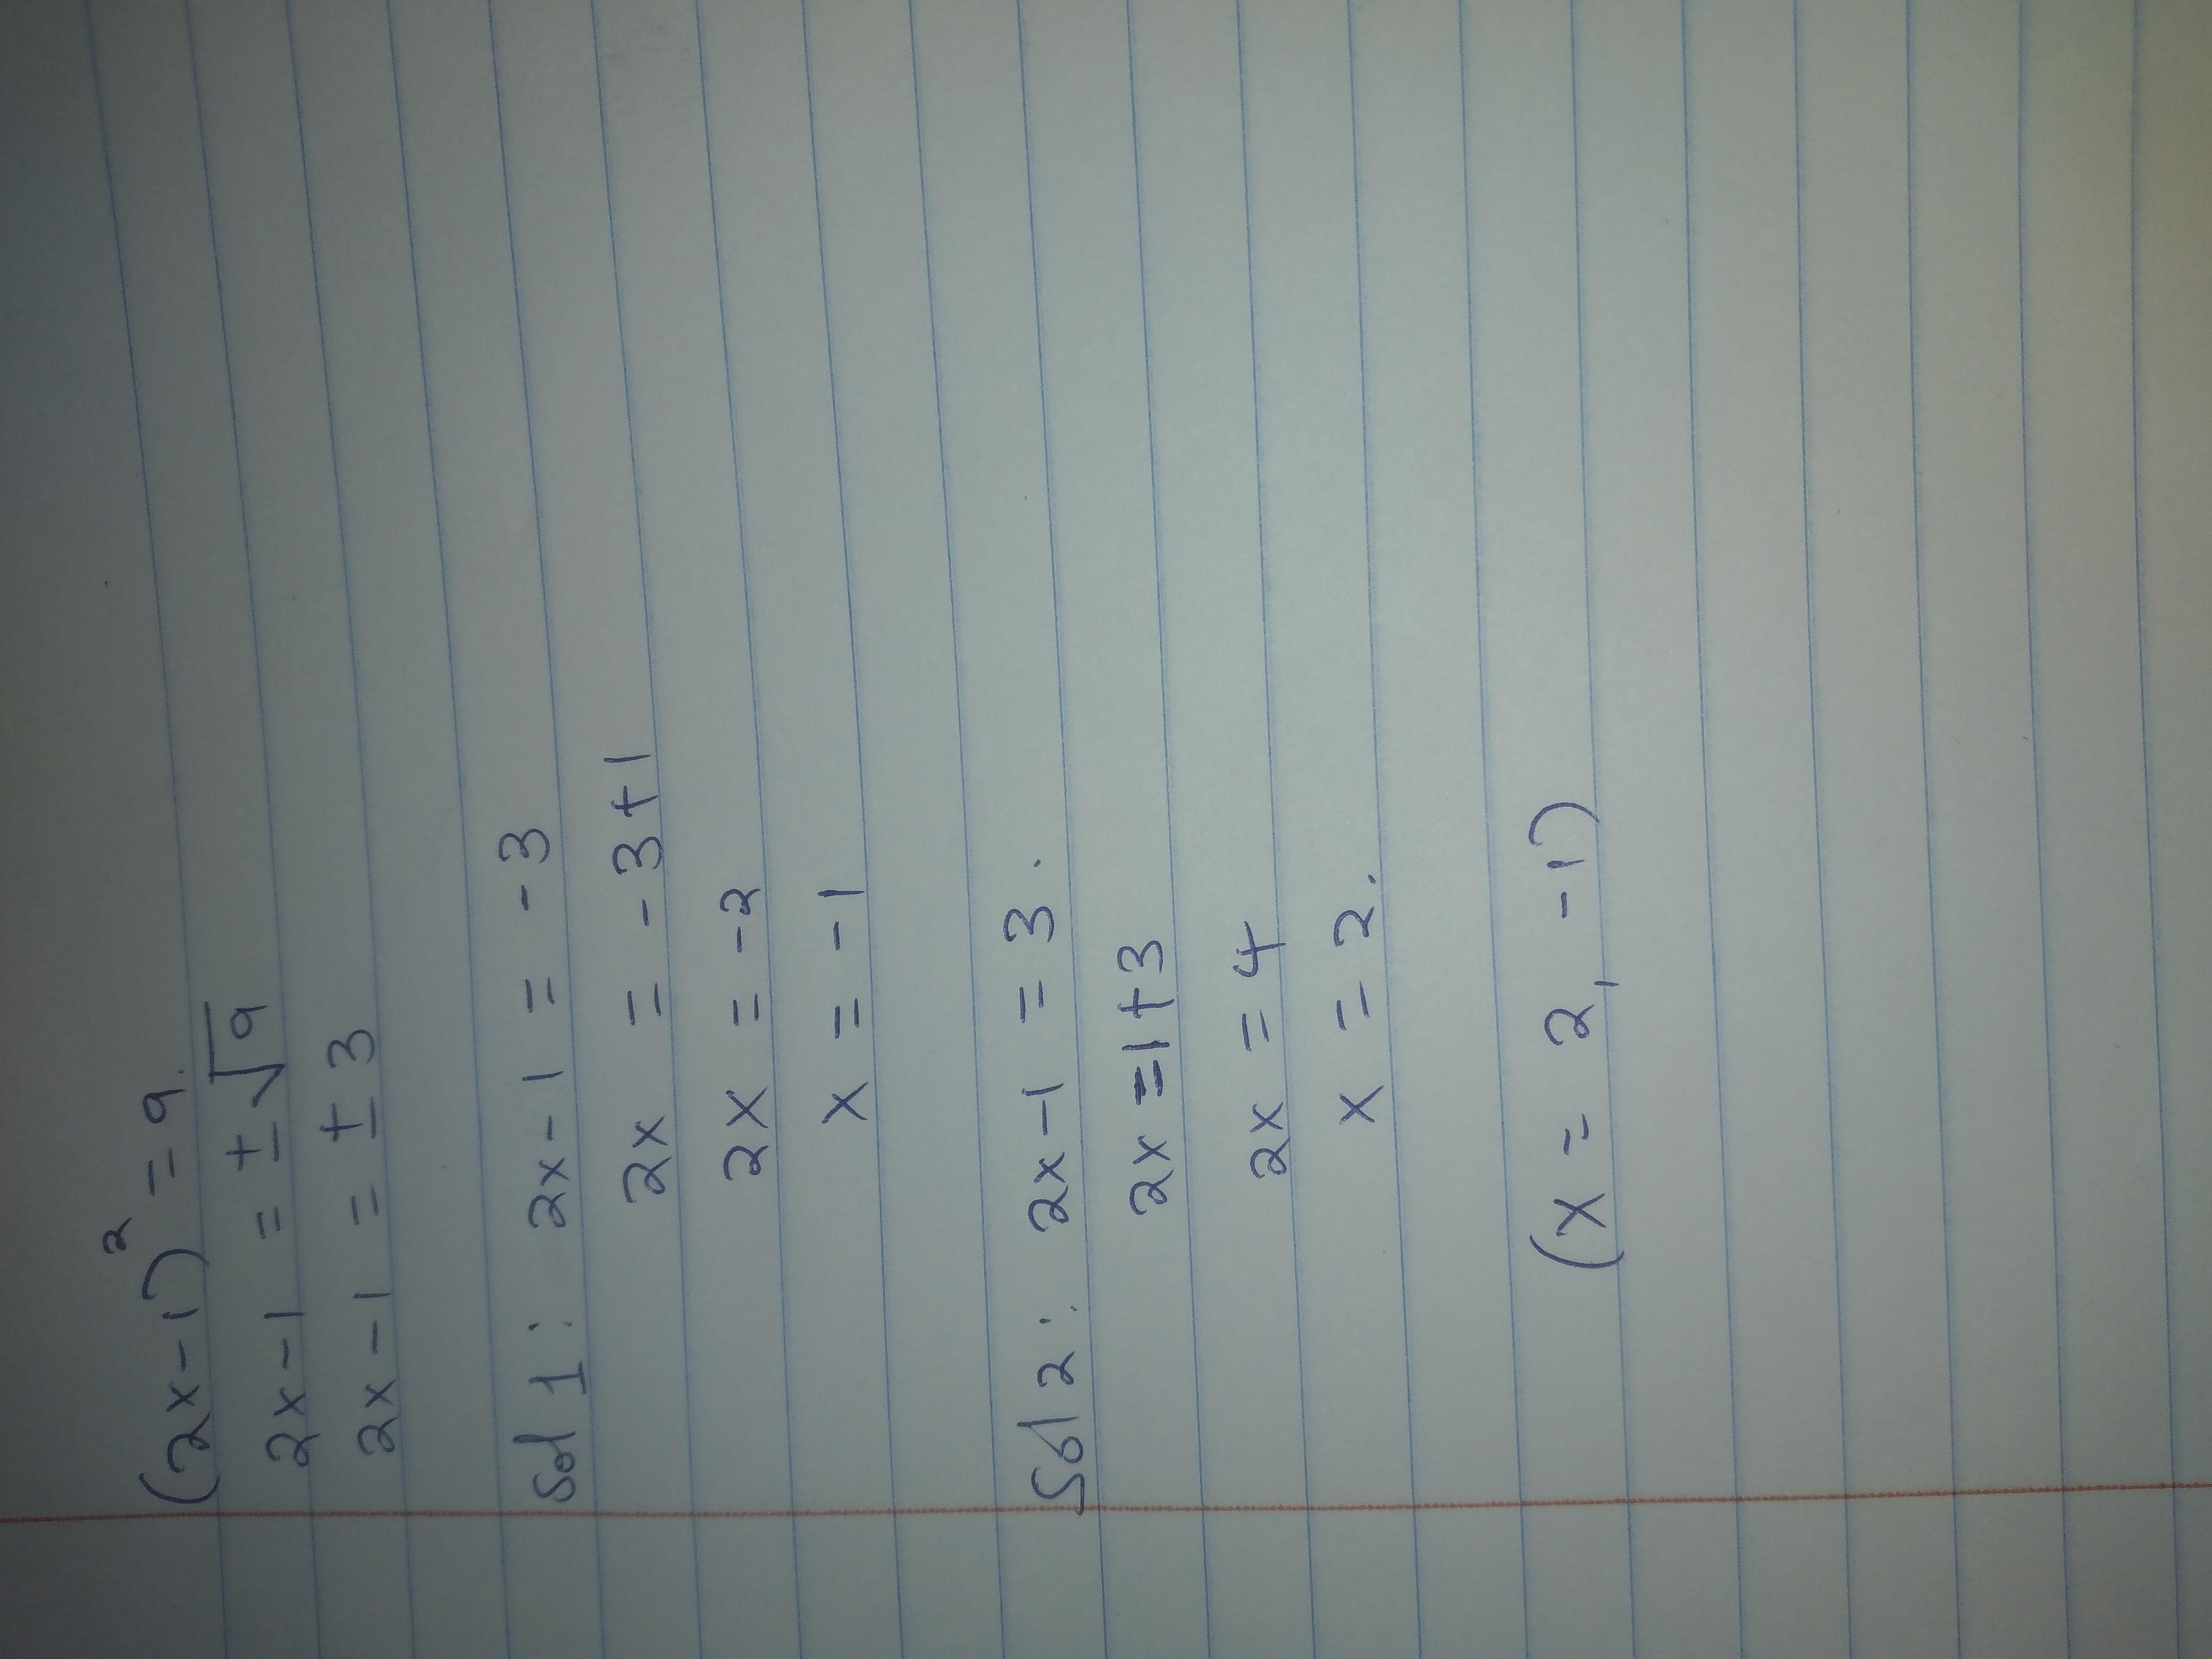 (2x-1)² = 9.
2x-1 = ±√9
2x-1 = ±3
Sol 1: 2x-1 = -3
2x = -3+1
2x = -2
x = -1
Sol 2: 2x-1 = 3.
2x = 1+3
2x = 4
x = 2.
(x = 2, -1)